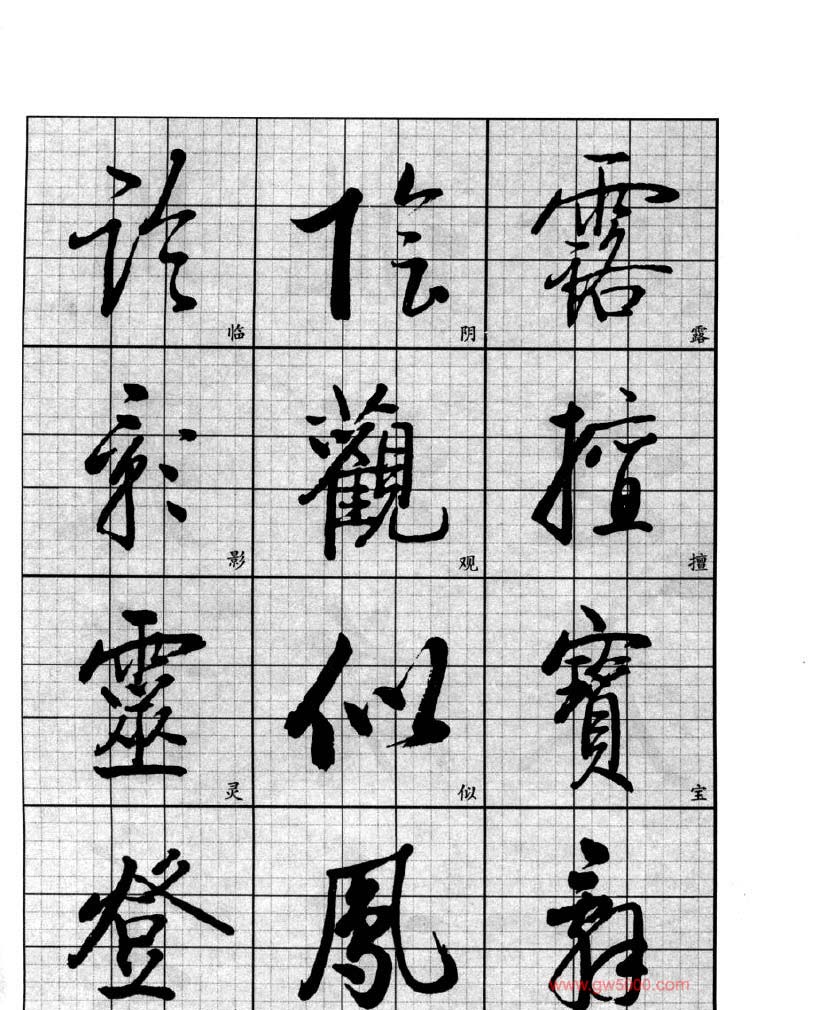 露 露
擅 擅
寶 宝
陰 阴
觀 观
似 似
鳳
臨 临
影 影
靈 灵
登
www.gw5000.com